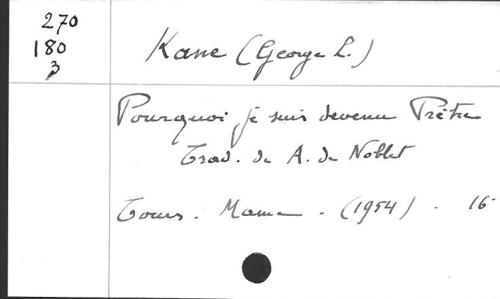 270
180
3
Kane (George L.)
Pourquoi je suis devenu Prêtre
Trad. de A. de Noblet
Tours. Mame. (1954). 16